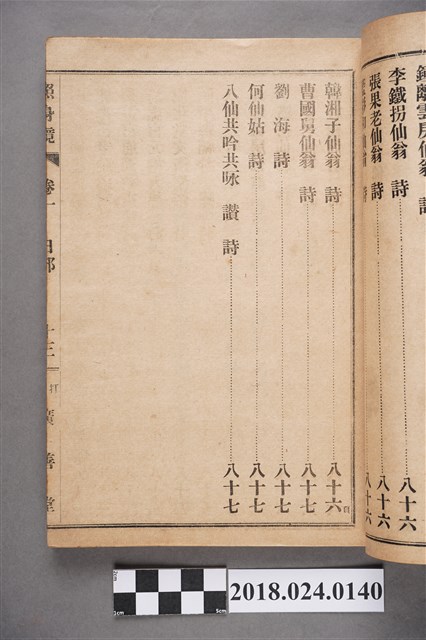 鍾離雲房仙翁 詩
李鐵拐仙翁 詩 八十六
張果老仙翁 詩 八十六
八十六
韓湘子仙翁 詩 八十六頁
曹國舅仙翁 詩 八十七
劉海 詩 八十七
何仙姑 詩 八十七
八仙共吟共咏 讚 詩 八十七
照身鏡 卷一 十三 廣善堂
2cm
1cm
5cm
2018.024.0140